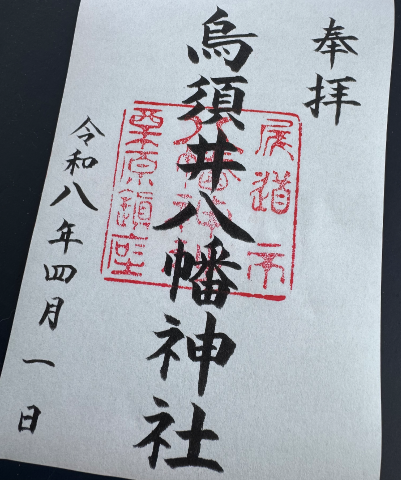 奉拝
烏須井八幡神社
尾道市
八幡神社
栗原鎮座
令和八年四月一日